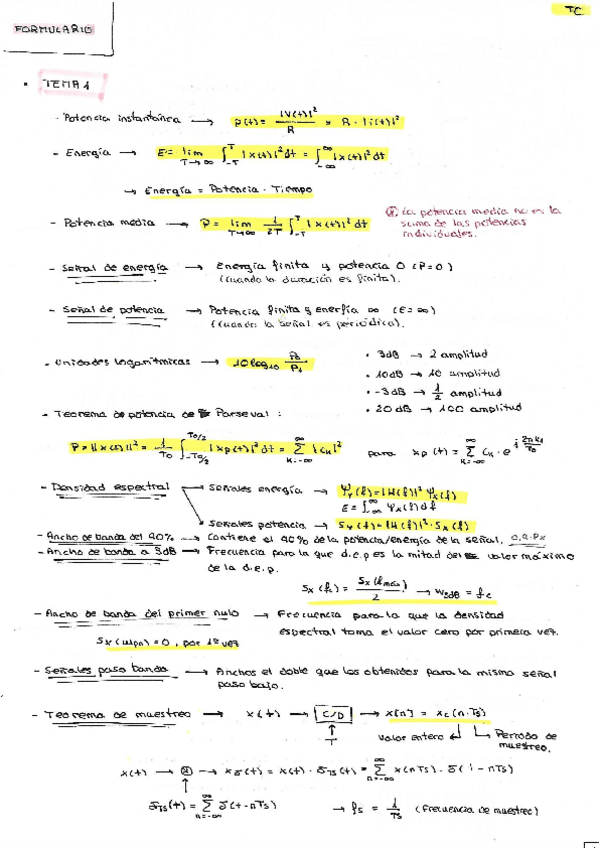 TC
FORMULARIO
• TEMA 1
- Potencia instantánea → p(t) = |V(t)|² / R = R · |i(t)|²
- Energía → E = lim T→∞ ∫_-T^T |x(t)|² dt = ∫_-∞^∞ |x(t)|² dt
→ Energía = Potencia · Tiempo
- Potencia media → P = lim T→∞ 1/2T ∫_-T^T |x(t)|² dt
⊛ La potencia media no es la
suma de las potencias
individuales.
- Señal de energía → Energía finita y potencia 0 (P=0)
(Cuando la duración es finita).
- Señal de potencia → Potencia finita y enerfía ∞ (E=∞)
(Cuando la señal es periódica).
- Unidades logarítmicas → 10 log₁₀ P₂/P₁
• 3dB → 2 amplitud
• 10dB → 10 amplitud
• -3dB → 1/2 amplitud
• 20dB → 100 amplitud
- Teorema de potencia de Parseval :
P = ||x(t)||² = 1/T₀ ∫_-T₀/2^T₀/2 |xp(t)|² dt = ∑_k=-∞^∞ |Ck|² para xp(t) = ∑_k=-∞^∞ Ck · e^
- Densidad espectral → Señales energía → Ψy(f) = |H(f)|² Ψx(f)
E = ∫_-∞^∞ Ψx(f) df
→ Señales potencia → Sy(f) = |H(f)|² · Sx(f)
- Ancho de banda del 90% → Contiene el 90% de la potencia/energía de la señal. 0,9·Px
- Ancho de banda a 3dB → Frecuencia para la que d.e.p es la mitad del valor máximo
de la d.e.p.
Sx(fc) = Sx(fmáx)/2 → W3dB = fc
- Ancho de banda del primer nulo → Frecuencia para la que la densidad
espectral toma el valor cero por primera vez.
Sx(Wpn) = 0, por 1ª vez
- Señales paso banda → Anchos el doble que los obtenidos para la misma señal
paso bajo.
- Teorema de muestreo → x(t) → C/D → x[n] = xc(n·Ts)
↑ T
Valor entero ↲ ↳ Periodo de
muestreo.
x(t) → ⊗ → xδ(t) = x(t) · δTs(t) = ∑_n=-∞^∞ x(nTs) · δ(t - nTs)
↑
δTs(t) = ∑_n=-∞^∞ δ(t - nTs) → fs = 1/Ts (Frecuencia de muestreo)